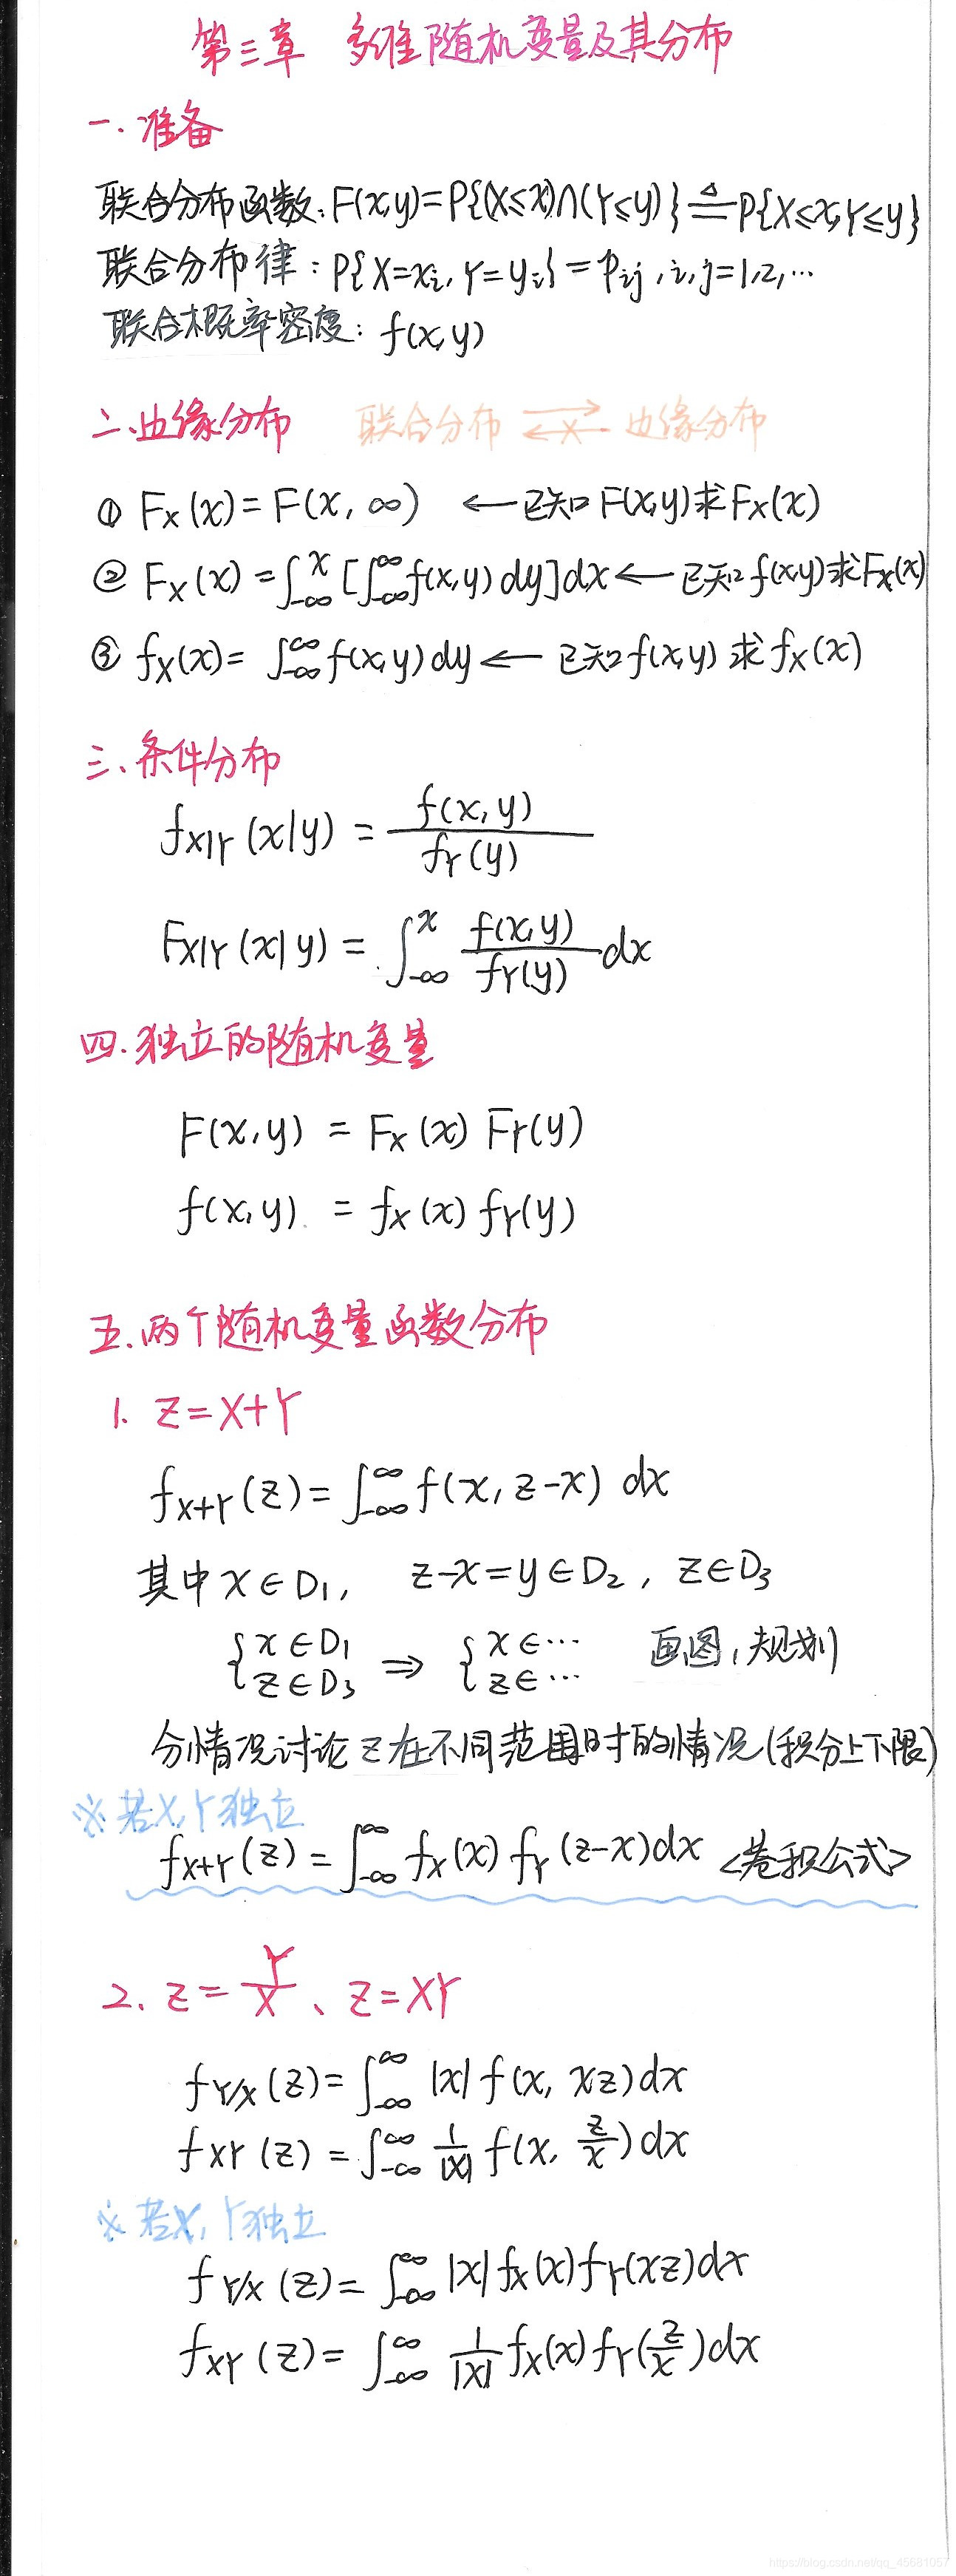 第三章 多维随机变量及其分布
一.准备
联合分布函数:F(x,y)=P{(X≤x)∩(Y≤y)}≜P{X≤x,Y≤y}
联合分布律:P{X=xi,Y=yi}=Pij,i,j=1,2,…
联合概率密度:f(x,y)
二、边缘分布 联合分布 ⇄ 边缘分布
① Fx(x)=F(x,∞) ← 已知F(x,y)求Fx(x)
② Fx(x)=∫_{-∞}^{x}[∫_{-∞}^{∞}f(x,y)dy]dx ← 已知f(x,y)求Fx(x)
③ fx(x)=∫_{-∞}^{∞}f(x,y)dy ← 已知f(x,y)求fx(x)
三、条件分布
f_{X|Y}(x|y)=f(x,y)/f_Y(y)
F_{X|Y}(x|y)=∫_{-∞}^{x} f(x,y)/f_Y(y) dx
四.独立的随机变量
F(x,y)=F_X(x)F_Y(y)
f(x,y)=f_X(x)f_Y(y)
五.两个随机变量函数分布
1. Z=X+Y
f_{X+Y}(z)=∫_{-∞}^{∞}f(x,z-x)dx
其中x∈D1, z-x=y∈D2, z∈D3
{x∈D1 z∈D3 ⇒ {x∈… z∈… 画图,规划
分情况讨论z在不同范围时的情况(积分上下限)
※若X,Y独立
f_{X+Y}(z)=∫_{-∞}^{∞}f_X(x)f_Y(z-x)dx <卷积公式>
2. Z=Y/X、Z=XY
f_{Y/X}(z)=∫_{-∞}^{∞}|x|f(x,xz)dx
f_{XY}(z)=∫_{-∞}^{∞}1/|x| f(x,z/x)dx
※若X,Y独立
f_{Y/X}(z)=∫_{-∞}^{∞}|x|f_X(x)f_Y(xz)dx
f_{XY}(z)=∫_{-∞}^{∞}1/|x| f_X(x)f_Y(z/x)dx
https://blog.csdn.net/qq_45681057